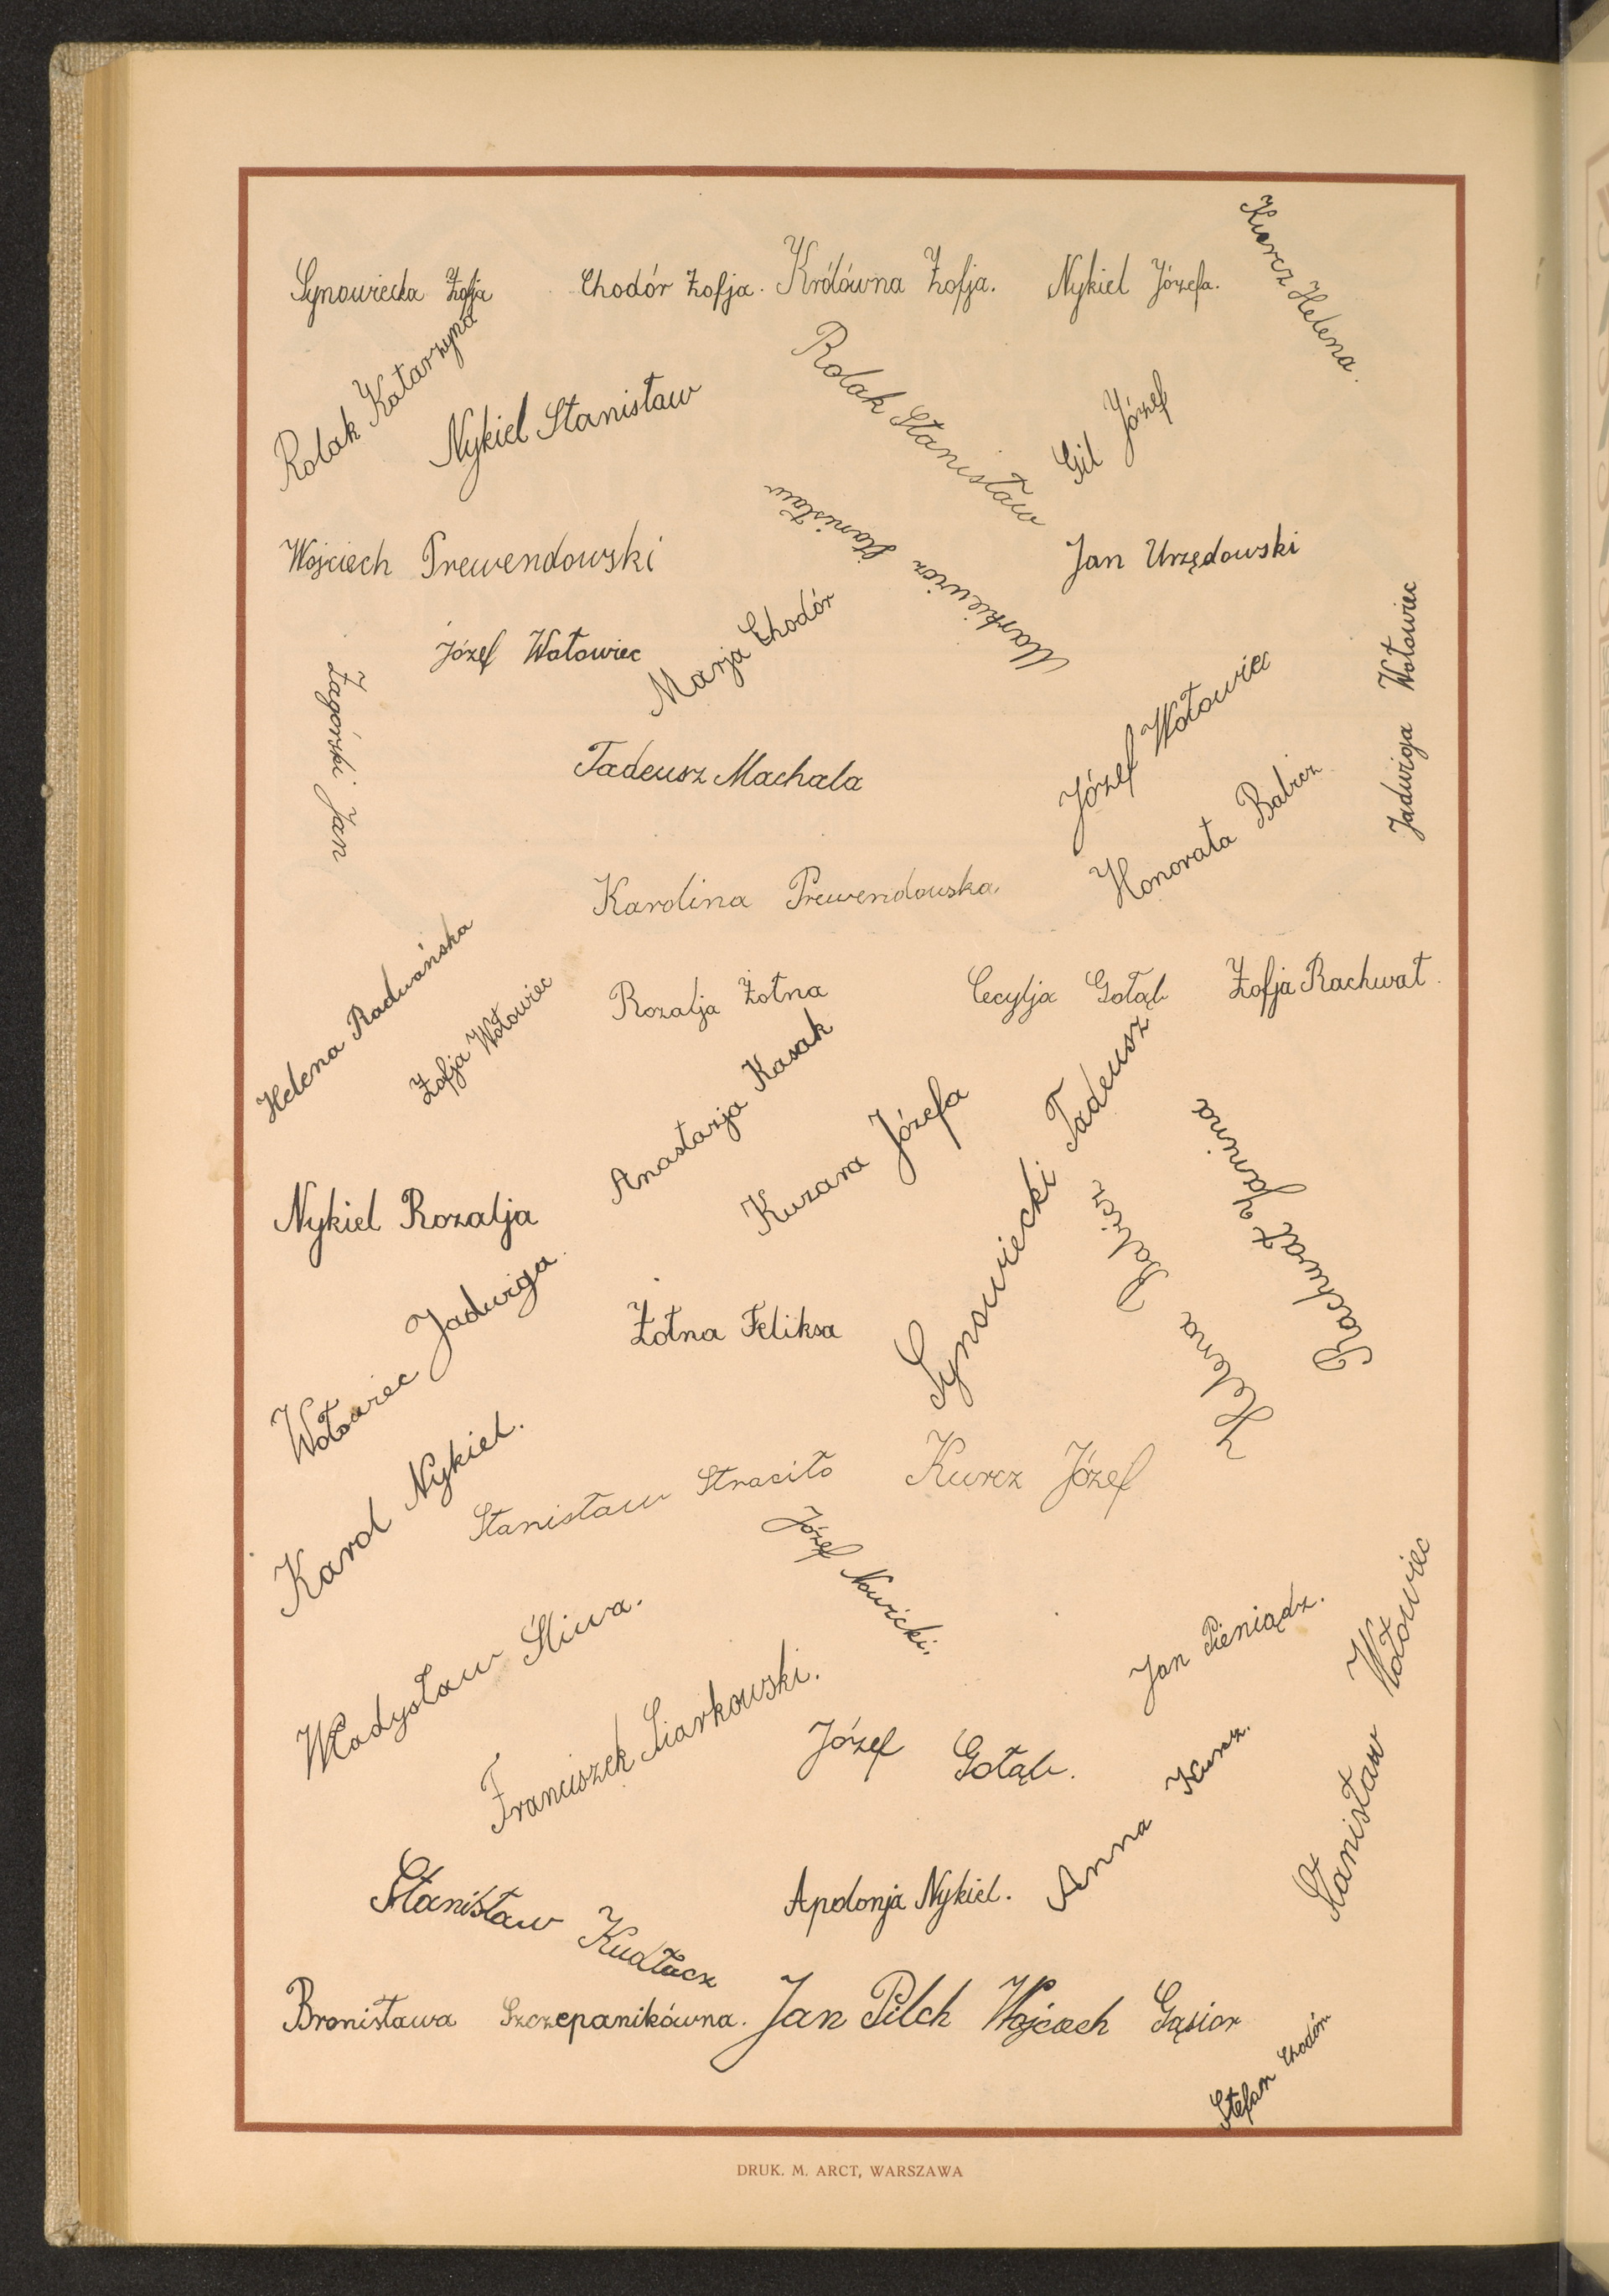 Synowiecka Zofja
Chodór Zofja.
Królówna Zofja.
Nykiel Józefa.
Kurcz Helena.
Rolak Katarzyna
Nykiel Stanisław
Rolak Stanisław
Gil Józef
Wojciech Prewendowski
Markiewicz Stanisław
Jan Urzędowski
Józef Wołowiec
Marja Chodór
Zagórski Jan
Tadeusz Machala
Józef Wołowiec
Jadwiga Wołowiec
Honorata Babicz
Karolina Prewendowska
Helena Radwańska
Zofja Wołowiec
Rozalja Żołna
Cecylja Gołąb
Zofja Rachwał.
Anastazja Kasak
Kuzara Józefa
Synowiecki Tadeusz
Rachwał Janina
Helena Babicz
Nykiel Rozalja
Wołowiec Jadwiga.
Żołna Feliksa
Karol Nykiel.
Stanisław Straciło
Kurcz Józef
Józef Nowicki.
Władysław Śliwa.
Franciszek Siarkowski.
Jan Pieniądz.
Stanisław Wołowiec
Józef Gołąb.
Anna Kurcz.
Stanisław Kudłacz
Apolonja Nykiel.
Bronisława Szczepanikówna.
Jan Pilch
Wojciech Gąsior
Stefan Chodór
DRUK. M. ARCT, WARSZAWA